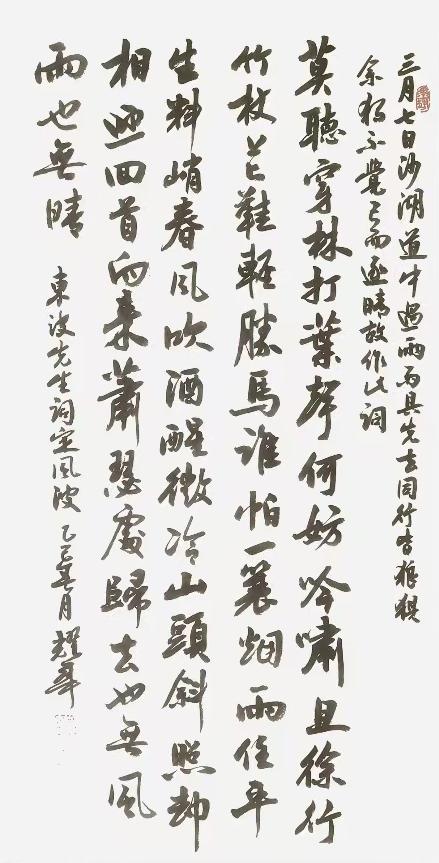 三月七日沙湖道中遇雨雨具先去同行皆狼狽
余獨不覺已而遂晴故作此詞
莫聽穿林打葉聲何妨吟嘯且徐行
竹杖芒鞋輕勝馬誰怕一蓑烟雨任平
生料峭春風吹酒醒微冷山頭斜照却
相迎回首向來蕭瑟處歸去也無風
雨也無晴
東坡先生詞定風波 乙巳年春月